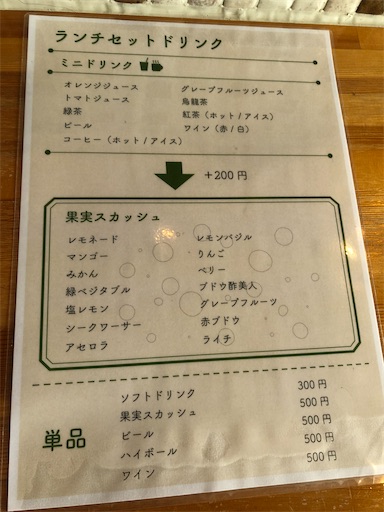 ランチセットドリンク
ミニドリンク
オレンジジュース グレープフルーツジュース
トマトジュース 烏龍茶
緑茶 紅茶（ホット/アイス）
ビール ワイン（赤/白）
コーヒー（ホット/アイス）
+200円
果実スカッシュ
レモネード レモンバジル
マンゴー りんご
みかん ベリー
緑ベジタブル ブドウ酢美人
塩レモン グレープフルーツ
シークワーサー 赤ブドウ
アセロラ ライチ
単品
ソフトドリンク 300円
果実スカッシュ 500円
ビール 500円
ハイボール 500円
ワイン 500円